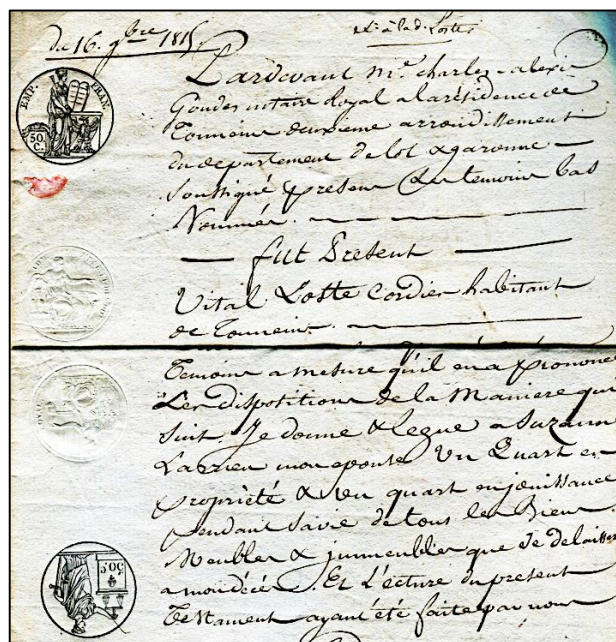 du 16. 9bre 1815
Pardevant Me. charles-alexis
Goudes notaire Royal a la residence de
Tonneins deuxieme arrondissement
du departement de lot & garonne
Soussigné presens les temoins bas
Nommés
fut Present
Vital Loste Cordier habitant
de Tonneins
EMP. FRAN.
50 C.
Temoins a mesure qu'il en a prononcé
Les dispositions de la Maniere qui
suit. Je donne & legue a Suzanne
Larrieu mon epouse Un Quart en
propriété & un quart en jouissance
pendant sa vie de tous les Biens
Meubles & jmmeubles que Je delaisserai
a mon décès. Et Lecture du present
Testament ayant été faite par nous
50C